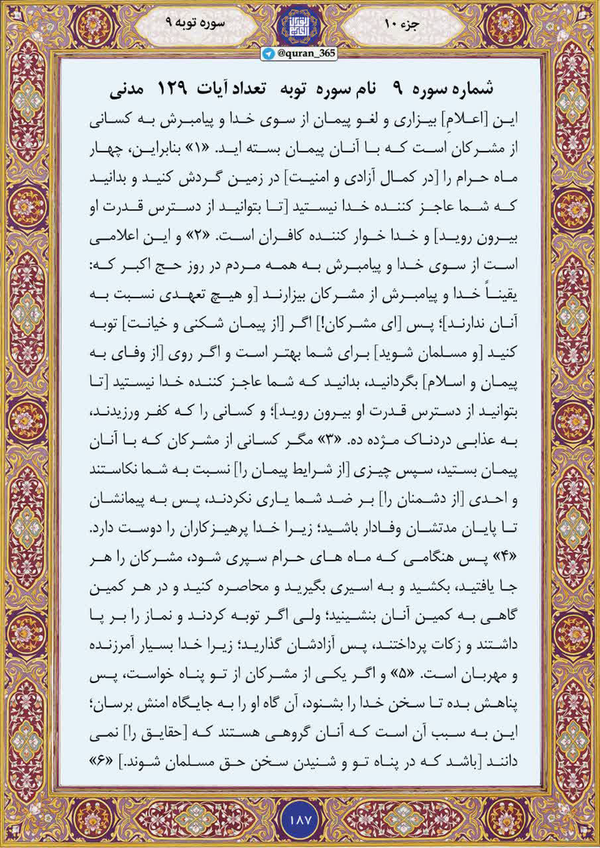 جزء ۱۰
سوره توبه ۹
@quran_365
شماره سوره ۹ نام سوره توبه تعداد آیات ۱۲۹ مدنی
این [اعلامِ] بیزاری و لغو پیمان از سوی خدا و پیامبرش به کسانی
از مشرکان است که با آنان پیمان بسته اید. «۱» بنابراین، چهار
ماه حرام را [در کمال آزادی و امنیت] در زمین گردش کنید و بدانید
که شما عاجز کننده خدا نیستید [تا بتوانید از دسترس قدرت او
بیرون روید] و خدا خوار کننده کافران است. «۲» و این اعلامی
است از سوی خدا و پیامبرش به همه مردم در روز حج اکبر که:
یقیناً خدا و پیامبرش از مشرکان بیزارند [و هیچ تعهدی نسبت به
آنان ندارند]؛ پس [ای مشرکان!] اگر [از پیمان شکنی و خیانت] توبه
کنید [و مسلمان شوید] برای شما بهتر است و اگر روی [از وفای به
پیمان و اسلام] بگردانید، بدانید که شما عاجز کننده خدا نیستید [تا
بتوانید از دسترس قدرت او بیرون روید]؛ و کسانی را که کفر ورزیدند،
به عذابی دردناک مژده ده. «۳» مگر کسانی از مشرکان که با آنان
پیمان بستید، سپس چیزی [از شرایط پیمان را] نسبت به شما نکاستند
و احدی [از دشمنان را] بر ضد شما یاری نکردند، پس به پیمانشان
تا پایان مدتشان وفادار باشید؛ زیرا خدا پرهیزکاران را دوست دارد.
«۴» پس هنگامی که ماه های حرام سپری شود، مشرکان را هر
جا یافتید، بکشید و به اسیری بگیرید و محاصره کنید و در هر کمین
گاهی به کمین آنان بنشینید؛ ولی اگر توبه کردند و نماز را بر پا
داشتند و زکات پرداختند، پس آزادشان گذارید؛ زیرا خدا بسیار آمرزنده
و مهربان است. «۵» و اگر یکی از مشرکان از تو پناه خواست، پس
پناهش بده تا سخن خدا را بشنود، آن گاه او را به جایگاه امنش برسان؛
این به سبب آن است که آنان گروهی هستند که [حقایق را] نمی
دانند [باشد که در پناه تو و شنیدن سخن حق مسلمان شوند.] «۶»
۱۸۷